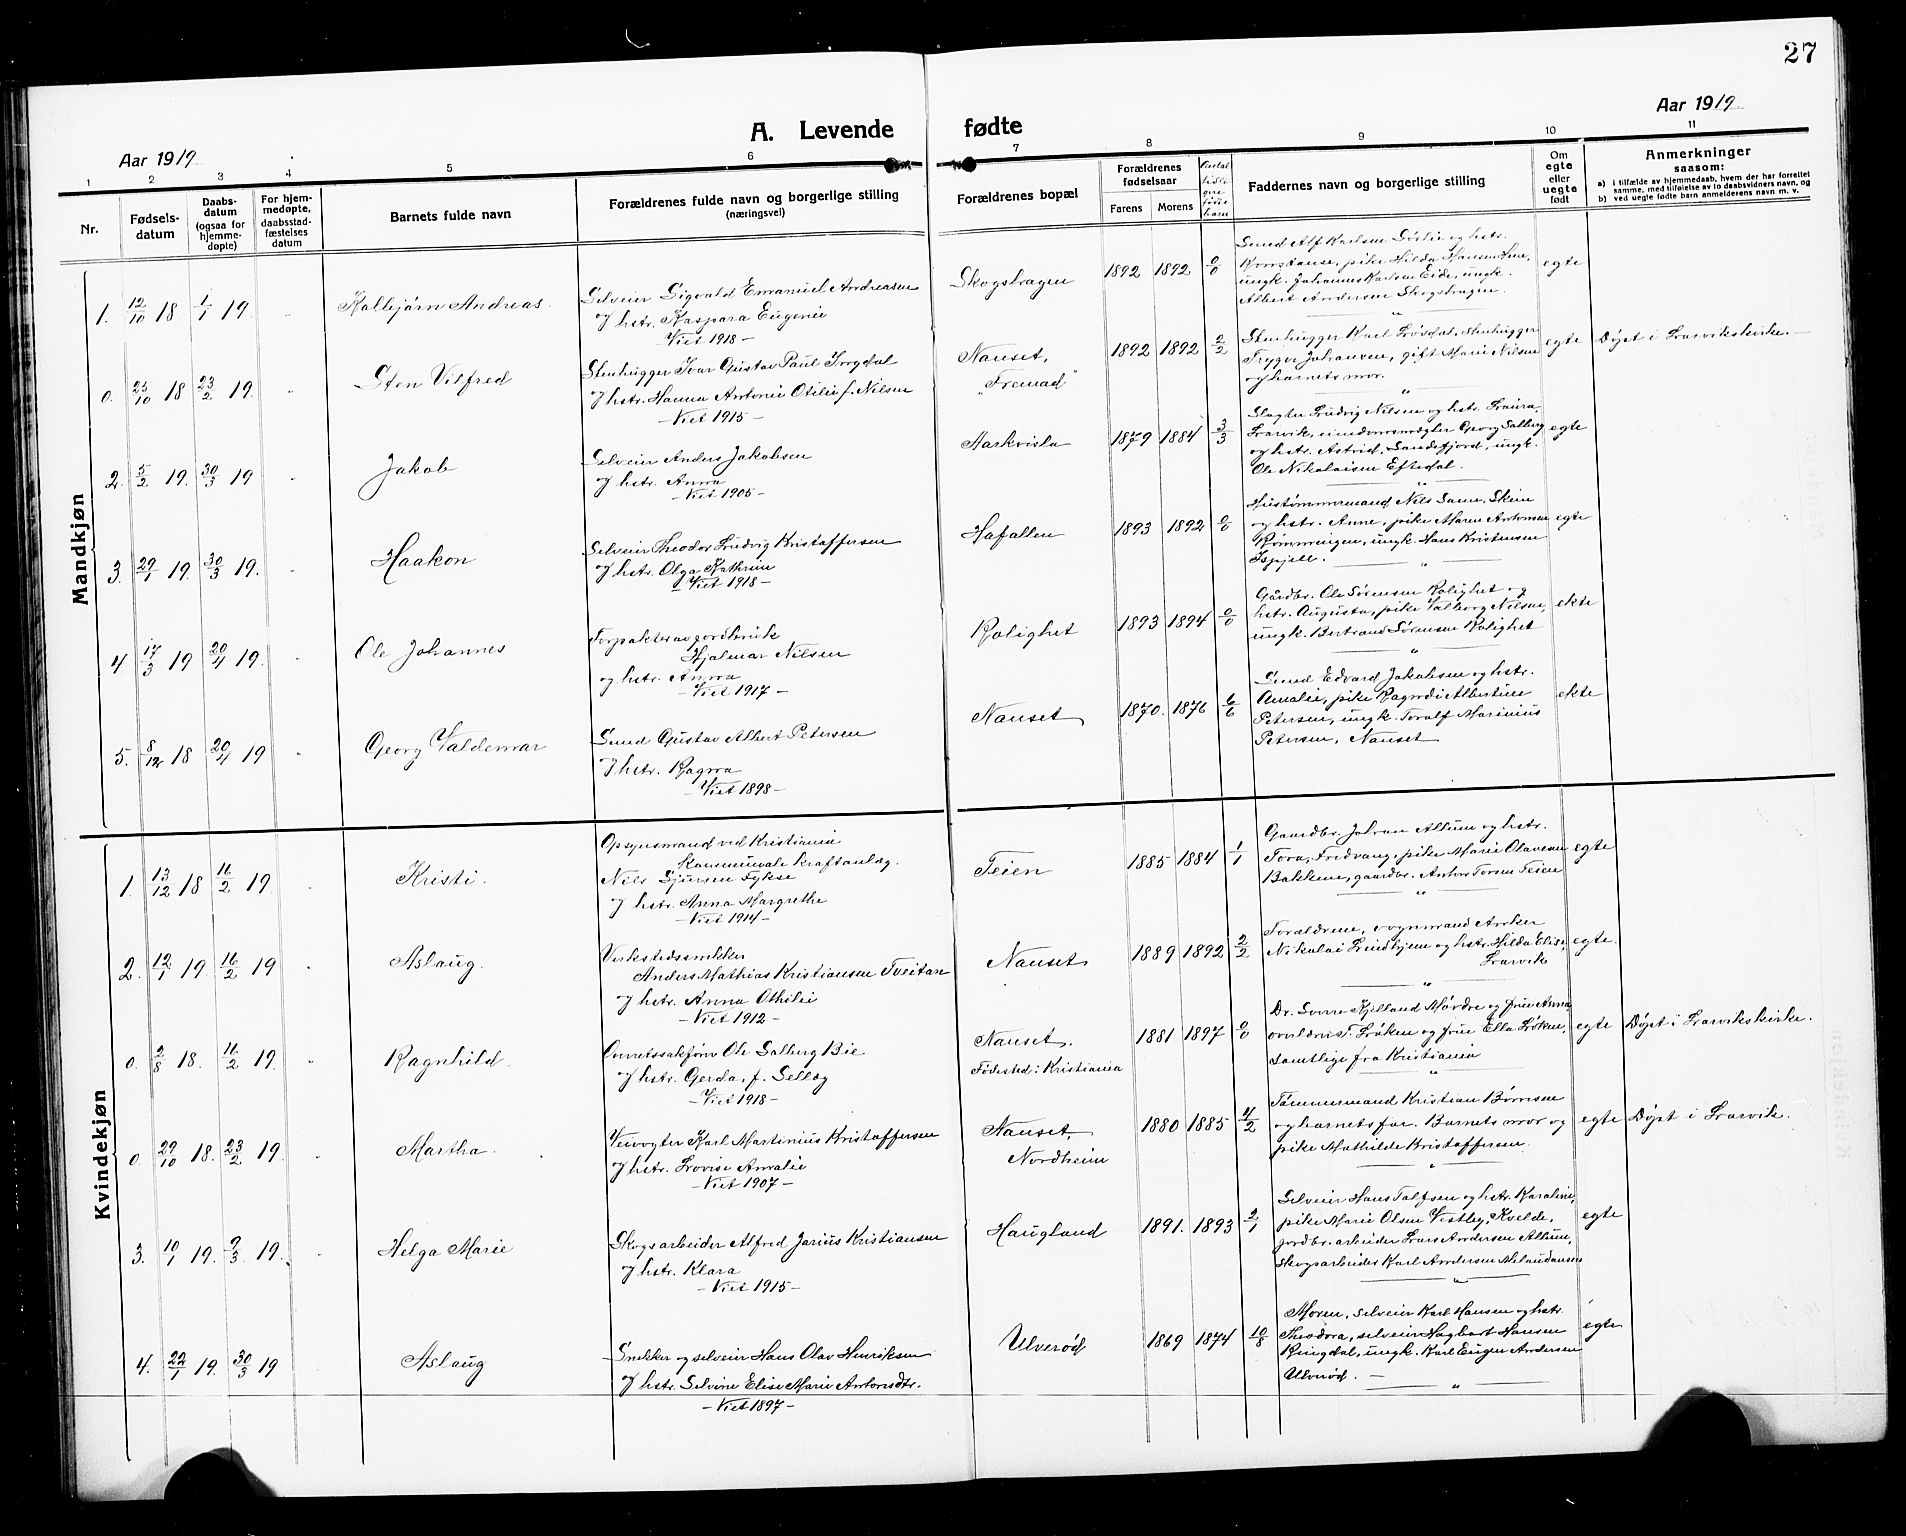 27
Aar 1919.
Aar 1919.
A. Levende fødte
1 2 3 4 5 6 7 8 9 10 11
Nr.
Fødsels-
datum
Daabs-
datum
(ogsaa for
hjemme-
døpte)
For hjem-
medøpte,
daabsstad-
fæstelses
datum
Barnets fulde navn
Forældrenes fulde navn og borgerlige stilling
(næringsvei)
Forældrenes bopæl
Forældrenes
fødselsaar
Farens Morens
Antal
tidli-
gere
fødte
barn
Faddernes navn og borgerlige stilling
Om
egte
eller
uegte
født
Anmerkninger
saasom:
a) i tilfælde av hjemmedaab, hvem der har forrettet
samme, med tilføielse av to daabsvidners navn, og
b) ved uegte fødte barn anmelderens navn m. v.
Mandkjøn
1. 12/10 18. 1/1 19 Kallbjørn Andreas.
Selveier Sigvald Emanuel Andreasen
og hstr. Kaspara Eugenie
Viet 1918 -
Skogshagen 1892 1892 0/0
Smed Alf Karlsen Sørlie og hstr.
Konstanse, pike Hilda Hansen Hem,
ungk. Johannes Karlsen Eide, ungk.
Albert Andersen Skogshagen.
egte
0. 25/10 18 23/2 19. Sten Vilfred
Stenhugger Ivar Gustav Paul Trygdal
og hstr. Hanna Antonie Otilie f. Nilsen
- Viet 1915 -
Nanset,
"Fremad"
1892 1892 2/2
Stenhugger Karl Løvdal, stenhugger
Trygve Johansen, gift Marie Nilsen
og barnets mor.
egte Døpt i Larvikskirke. -
2. 5/2 19. 30/3 19 Jakob
Selveier Anders Jakobsen
og hstr. Anna
- Viet 1905 -
Aarkvisla 1879 1884 3/3
Slagter Ludvig Nilsen og hstr. Laura,
Larvik, eiendomsmægler Georg Salberg
og hstr. Astrid, Sandefjord, ungk.
Ole Nikolaisen Eftedal.
egte
3. 29/1 19. 30/3 19. Haakon
Selveier Theodor Ludvig Kristoffersen
og hstr. Olga Kathrine
- Viet 1918 -
Hafallen 1893 1892 0/0
Hustømmermand Nils Lame, Skien
og hstr. Anne, pike Maren Antonsen
Rømmingen, ungk. Hans Kristensen
Ispjell.
egte
4 17/3 19 20/4 19. Ole Johannes
Forpakter av jordbruk
Hjalmar Nilsen
og hstr. Anna
- Viet 1917 -
Rolighet 1893 1894 0/0
Gårdbr. Ole Sørensen Rolighet og
hstr. Augusta, pike Valborg Nilsen,
ungk. Bertrand Sørensen Rolighet
ekte
5. 8/12 18 20/4 19 Georg Valdemar
Smed Gustav Albert Petersen
og hstr. Ragna
- Viet 1898 -
Nanset 1870. 1876 6/6
Smed Edvard Jakobsen og hstr.
Amalie, pike Ragndi Albertine
Petersen, ungk. Toralf Marinius
Petersen, Nanset
ekte
Kvindekjøn
1. 13/12 18 16/2 19. Kristi.
Opsynsmand ved Kristiania
Kommunale Kraftanlæg.
Nils Sjursen Fykse
og hstr. Anna Margrethe
- Viet 1914 -
Teien 1885 1884 1/1
Gaardbr. Johan Allum og hstr.
Tora, Fredvang, pike Marie Olavesen
Bakkene, gaardbr. Anton Torsen Teien
egte
2. 12/1 19 16/2 19 Aslaug.
Verkstedssnekker
Anders Mathias Kristiansen Tveitan
og hstr. Anna Othilie
- Viet 1912 -
Nanset 1889 1892 2/2
Forældrene, vognmand Anker
Nikolai Lindhjem og hstr. Hilda Elise,
Larvik
egte.
0. 2/8 18. 16/2 19. Ragnhild.
Overretssakfører Ole Salberg Bie
og hstr. Gerda, f. Selleg
- Viet 1918 -
Nanset.
Fødested: Kristiania
1881 1897 0/0
Dr. Sverre Kjelland Mørdre og frue Anna,
overlærer F. Løken og frue Ella Løken,
samtlige fra Kristiania
egte Døpt i Larvikskirke.
0. 29/10 18. 23/2 19. Martha.
Veivogter Karl Martinius Kristoffersen
og hstr. Lovise Amalie
- Viet 1907 -
Nanset,
Nordheim
1880 1885 4/2
Tømmermand Kristian Børresen
og barnets far. Barnets mor og
pike Mathilde Kristoffersen.
egte Døpt i Larvik.
3. 10/1 19. 9/3 19. Helga Marie
Skogsarbeider Alfred Jarius Kristiansen
og hstr. Klara
- Viet 1915 -
Haugland 1891. 1893 2/1
Selveier Hans Tolfsen og hstr. Karoline,
pike Marie Olsen Vestby, Kvelde,
jordbr. arbeider Lars Andersen Allum,
skogsarbeider Karl Andersen
egte
4. 22/1 19. 30/3 19 Aslaug
Snekker og selveier Hans Olav Henriksen
og hstr. Selvine Elise Marie Antonsdtr.
- Viet 1897 -
Ulverød 1869 1874 10/8
Moren, selveier Karl Hansen og hstr.
Theodora, selveier Hagbart Hansen
Ringdal, ungk. Karl Eugen Andersen
Ulverød. -
egte